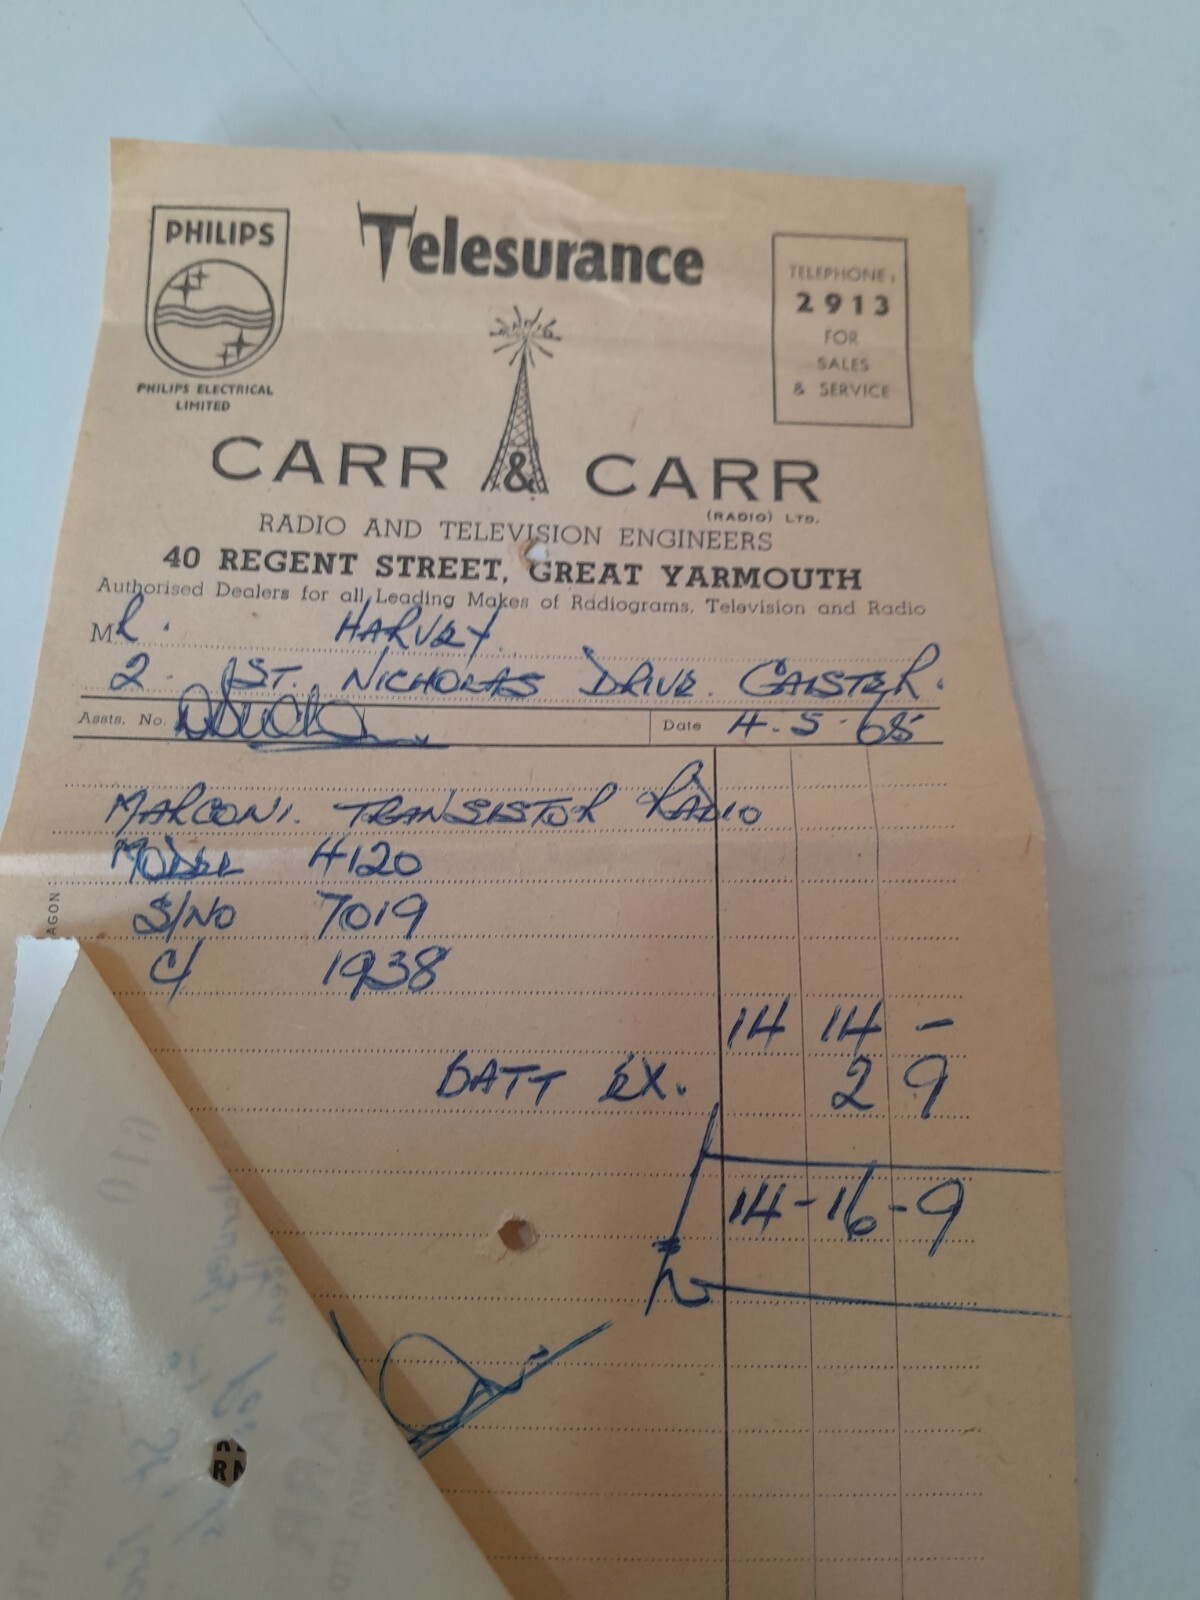 PHILIPS
PHILIPS ELECTRICAL
LIMITED
Telesurance
TELEPHONE:
2913
FOR
SALES
& SERVICE
CARR & CARR
(RADIO) LTD.
RADIO AND TELEVISION ENGINEERS
40 REGENT STREET, GREAT YARMOUTH
Authorised Dealers for all Leading Makes of Radiograms, Television and Radio
MR. HARVEY.
2. ST. NICHOLAS DRIVE. CAISTER.
Assts. No.
Date 4-5-68
MARCONI. TRANSISTOR RADIO
MODEL 4120
S/NO 7019
C/ 1938
14 14 -
BATT EX. 2 9
£ 14-16-9
AGON